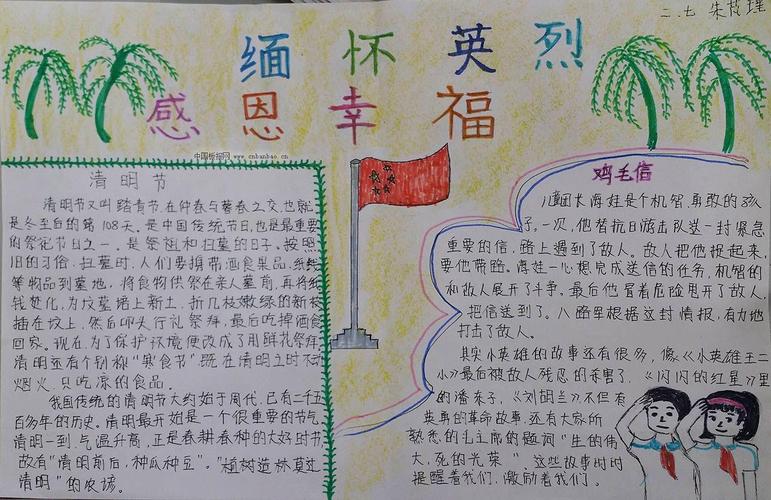 二.七 朱芷瑾
缅怀英烈
感恩幸福
中国板报网 www.cnbanbao.cn
清明节
清明节又叫踏青节,在仲春与暮春之交,也就
是冬至后的第108天。是中国传统节日,也是最重要
的祭祀节日之一,是祭祖和扫墓的日子。按照
旧的习俗,扫墓时,人们要携带酒食果品,纸钱
等物品到墓地,将食物供祭在亲人墓前,再将纸
钱焚化,为坟墓培上新土,折几枝嫩绿的新枝
插在坟上,然后叩头行礼祭拜,最后吃掉酒食
回家。现在,为了保护环境便改成了用鲜花祭拜,
清明还有个别称“寒食节”既在清明之时不动
烟火,只吃凉的食品。
我国传统的清明节大约始于周代,已有二千五
百多年的历史。清明最开始是一个很重要的节气,
清明一到,气温升高,正是春耕春种的大好时节,
故有“清明前后,种瓜种豆”。“植树造林莫过
清明”的农谚。
鸡毛信
儿童团长海娃是个机智,勇敢的孩
子。一次,他替抗日游击队送一封紧急
重要的信,路上遇到了敌人。敌人把他捉起来,
要他带路。海娃一心想完成送信的任务,机智的
和敌人展开了斗争。最后他冒着危险甩开了敌人,
把信送到了。八路军根据这封情报,有力地
打击了敌人。
其实小英雄的故事还有很多,像《小英雄王二
小》最后被敌人残忍的杀害了,《闪闪的红星》里
的潘冬子,《刘胡兰》不但有
英勇的革命故事,还有大家所
熟悉的毛主席的题词“生的伟
大,死的光荣”,这些故事时时
提醒着我们,激励着我们。